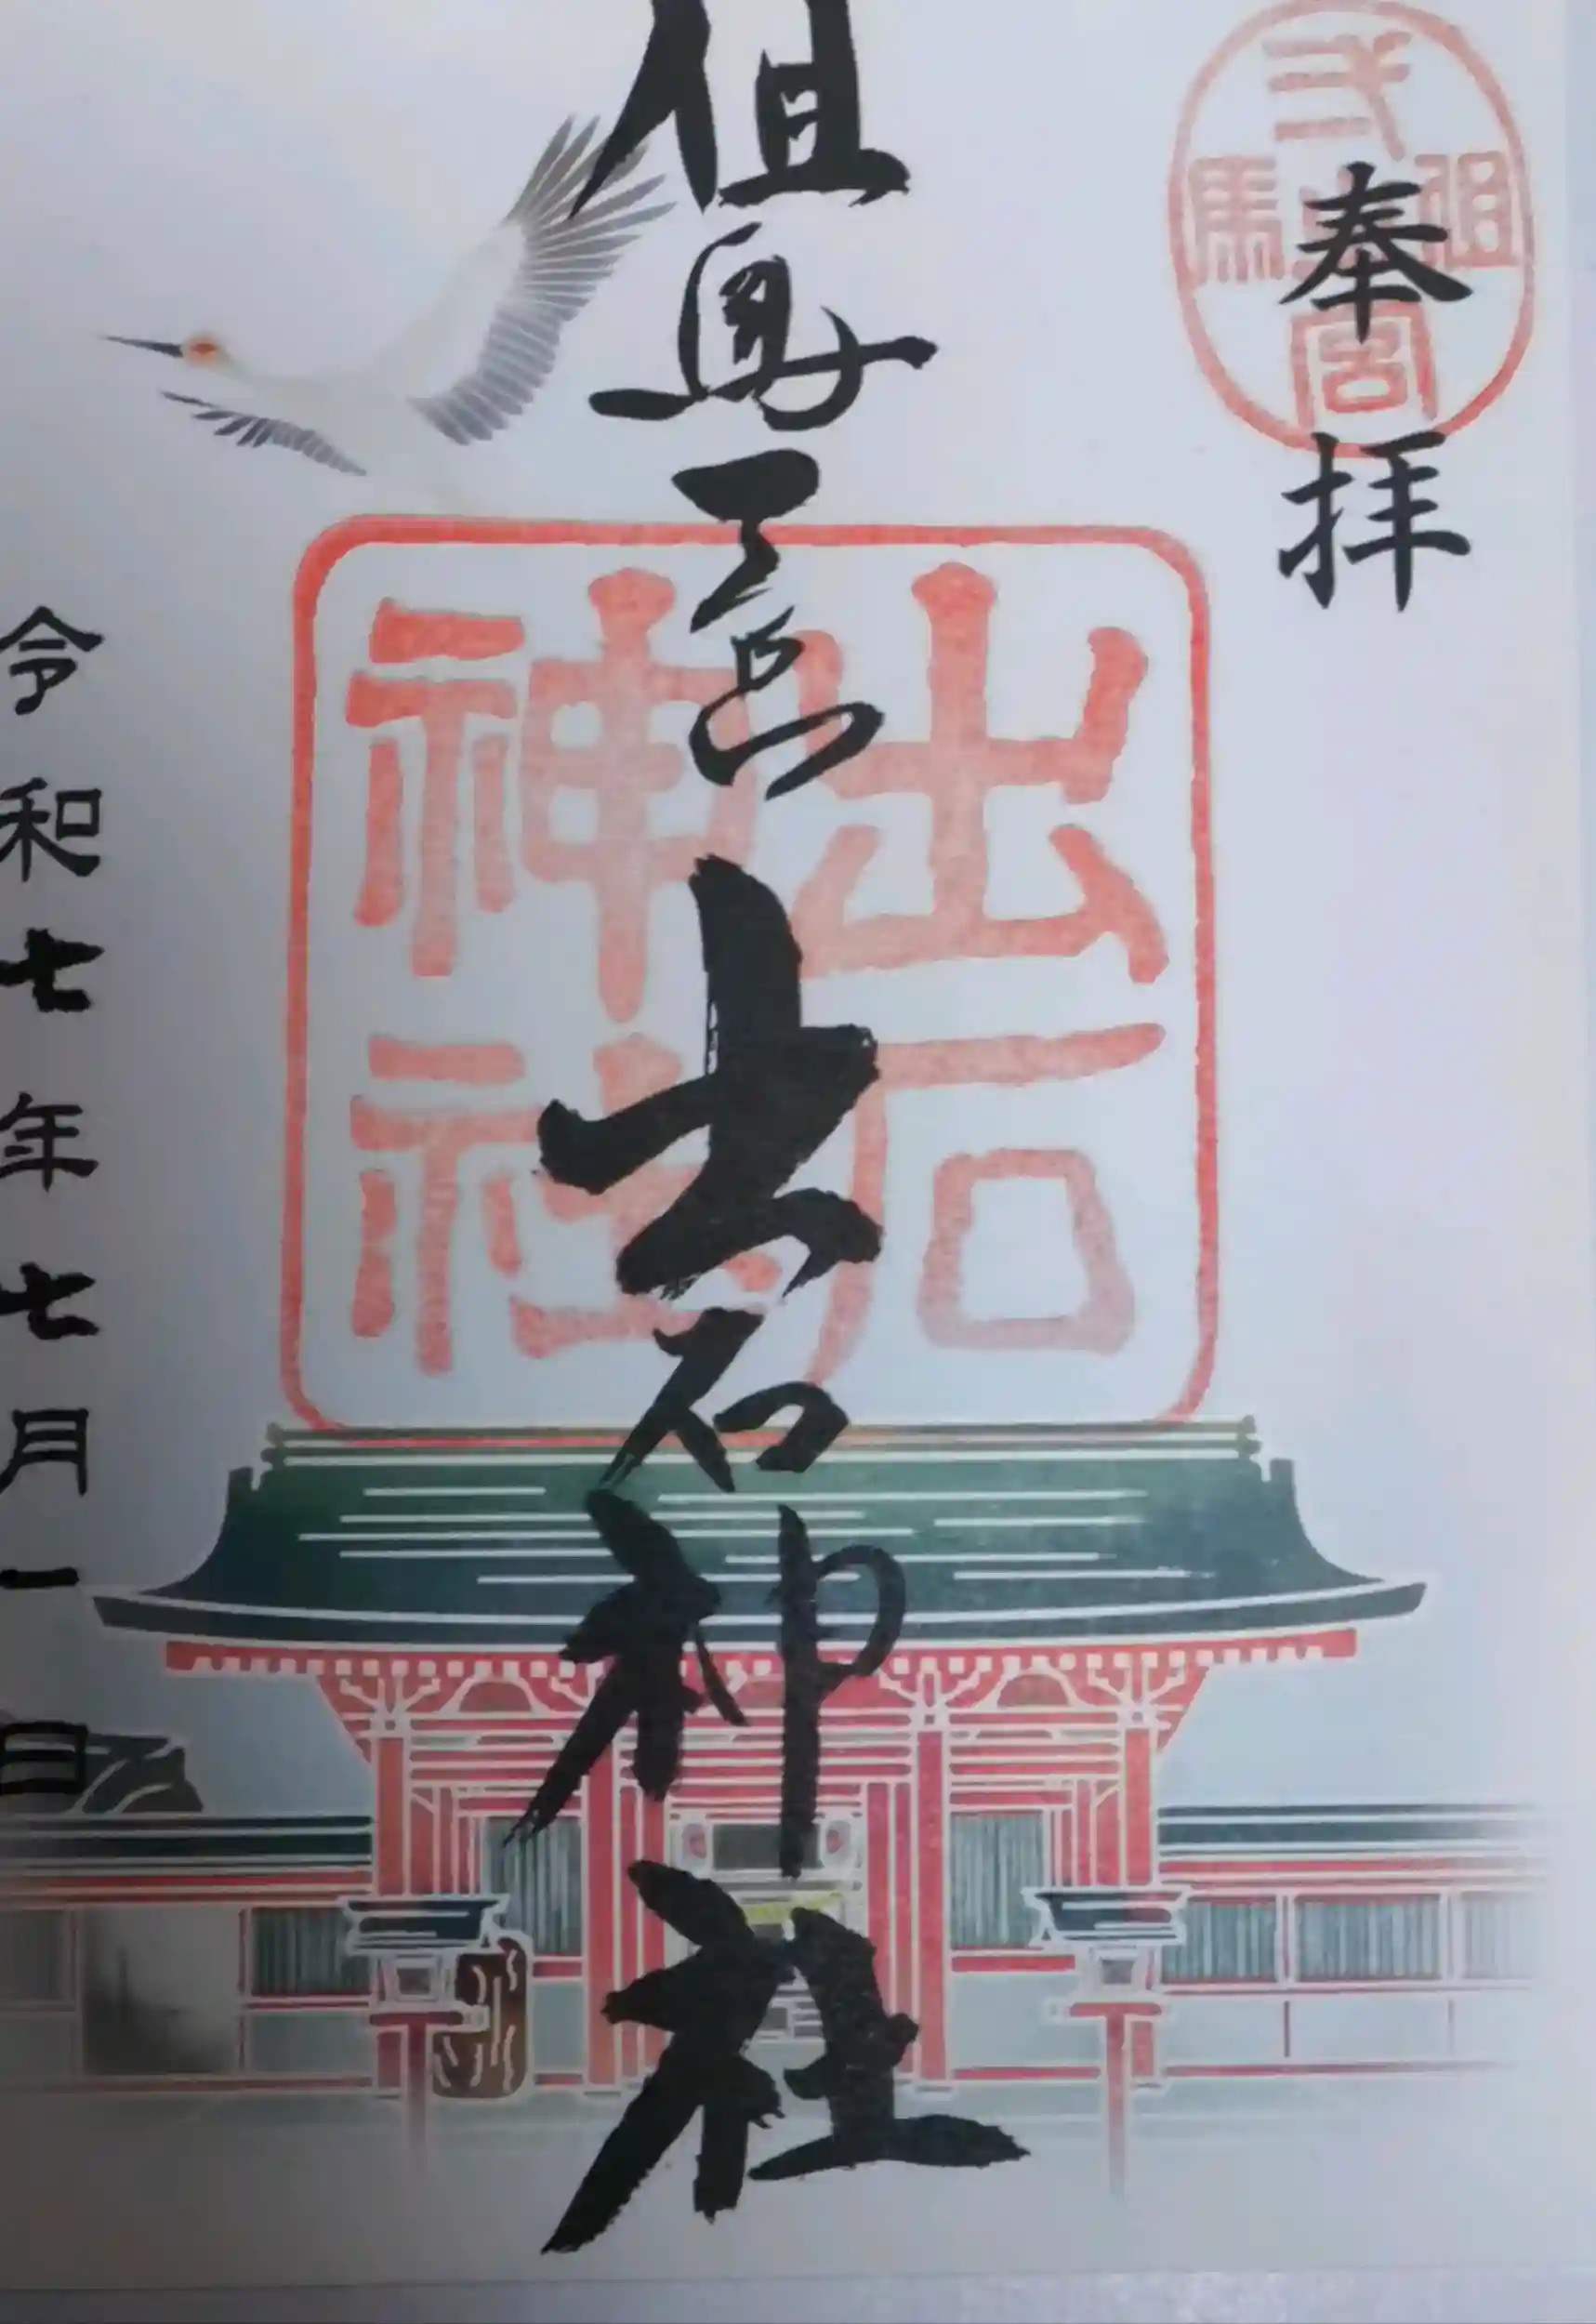 奉拝
但馬
弌宮
但馬一宮出石神社
出石
神社
令和七年七月一日